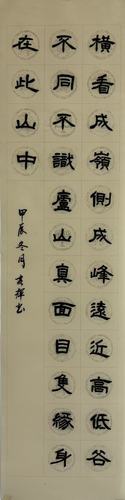 橫看成嶺側成峰遠近高低谷
不同不識廬山真面目隻緣身
在此山中
甲辰冬月